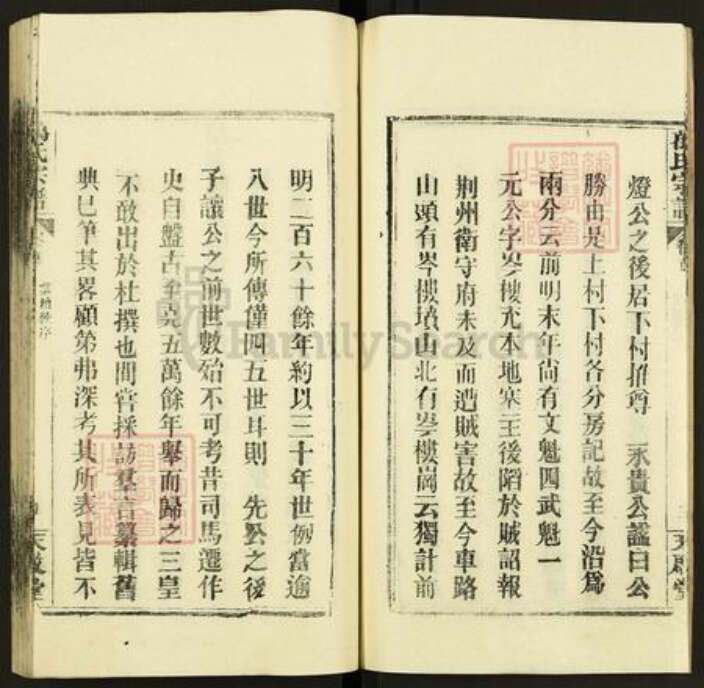 燈公之後居下村推尊 永貴公諡曰公
勝由是上村下村各分房記故至今沿爲
兩分云前明末年尚有文魁四武魁一
元公字岑樓充本地寨主後陷於賊詔報
荆州衛守府未及而遭賊害故至今車路
山頭有岑樓墳山北有岑樓崗云獨計前
明二百六十餘年約以三十年世例當逾
八世今所傳僅四五世耳則 先公之後
子讓公之前世數殆不可考昔司馬遷作
史自盤古至堯五萬餘年舉而歸之三皇
不敢出於杜撰也間嘗採訪羣言纂輯舊
典已筆其畧顧第弗深考其所表見皆不
氏宗譜
天慶堂
FamilySearch